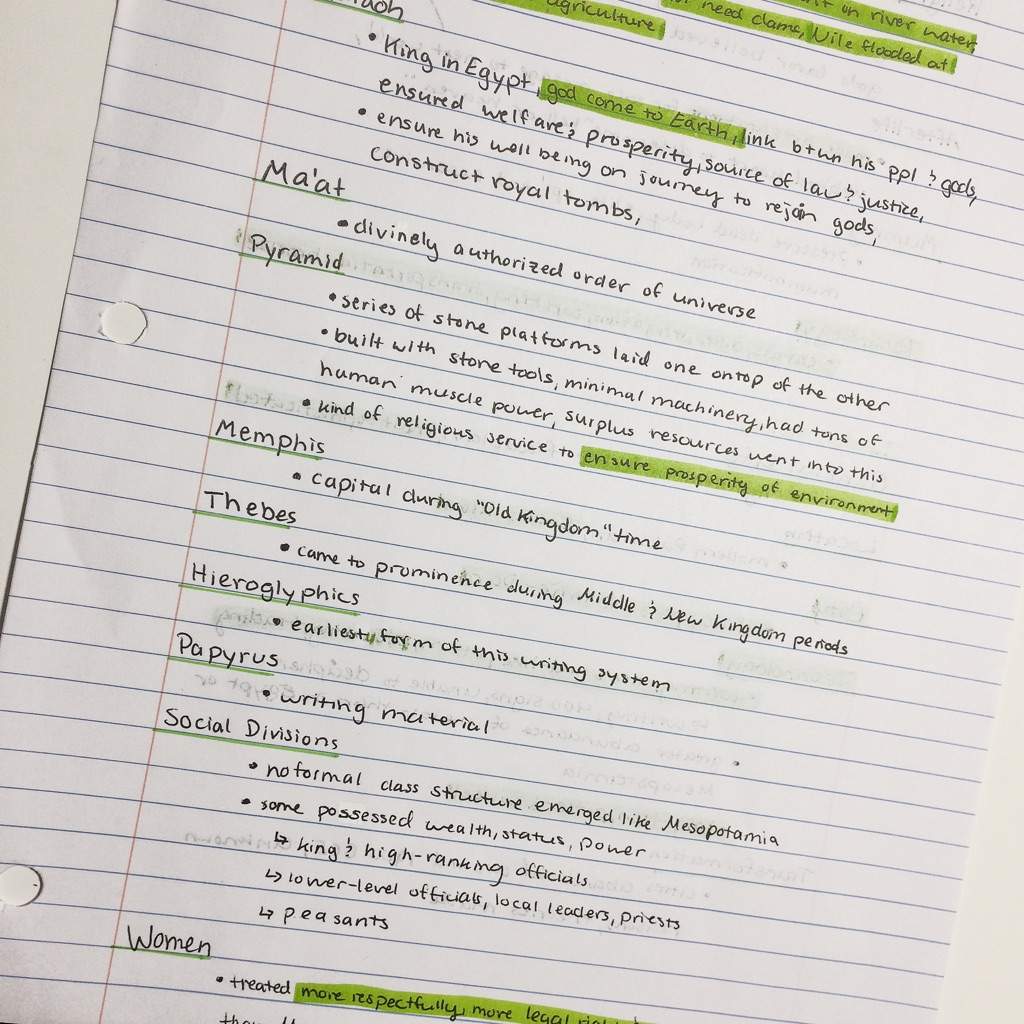 on river water,
agriculture
need clams, Nile flooded at
• King in Egypt, god come to Earth, link btwn his ppl & gods,
ensured welfare & prosperity, source of law & justice,
• ensure his well being on journey to rejoin gods,
construct royal tombs,
Ma'at
• divinely authorized order of universe
Pyramid
• series of stone platforms laid one ontop of the other
• built with stone tools, minimal machinery, had tons of
human muscle power, surplus resources went into this
• kind of religious service to ensure prosperity of environment
Memphis
• capital during "Old Kingdom" time
Thebes
• came to prominence during Middle & New Kingdom periods
Hieroglyphics
• earliest form of this writing system
Papyrus
• writing material
Social Divisions
• no formal class structure emerged like Mesopotamia
• some possessed wealth, status, power
↳ king & high-ranking officials
↳ lower-level officials, local leaders, priests
↳ peasants
Women
• treated more respectfully, more legal